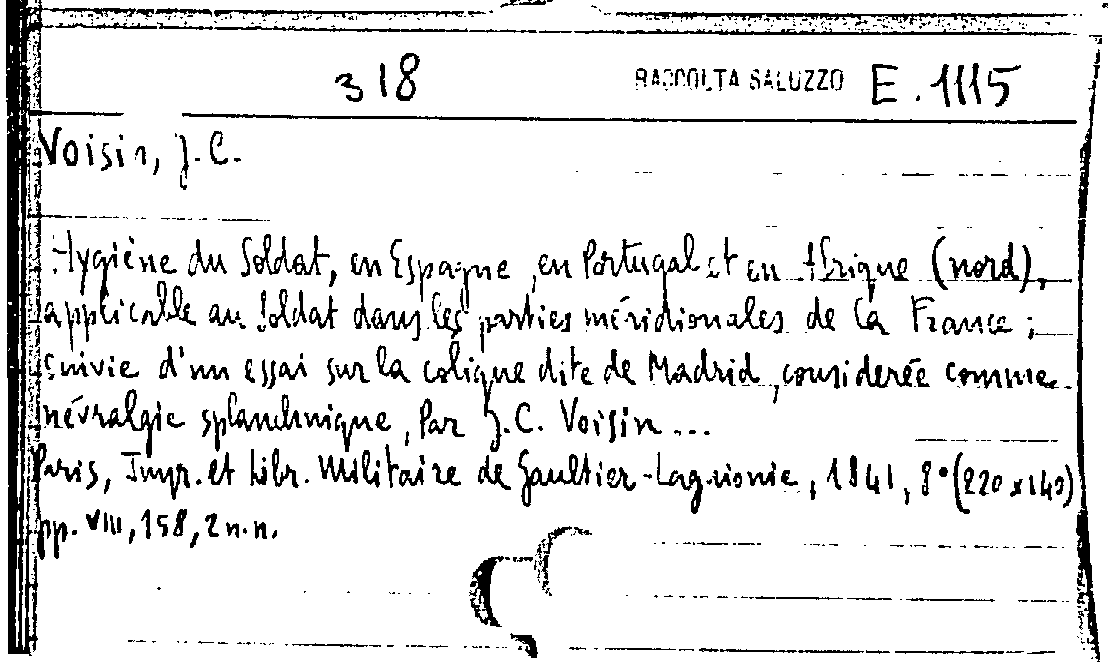 318 RACCOLTA SALUZZO E. 1115
Voisin, J.C.
Hygiène du Soldat, en Espagne, en Portugal et en Afrique (nord),
applicable au Soldat dans les parties méridionales de la France;
suivie d'un essai sur la colique dite de Madrid, considerée comme
névralgie splanchnique, Par J.C. Voisin...
Paris, Impr. et Libr. Militaire de Gaultier-Laguionie, 1841, 8° (220 x 140)
pp. VIII, 158, 2 n.n.